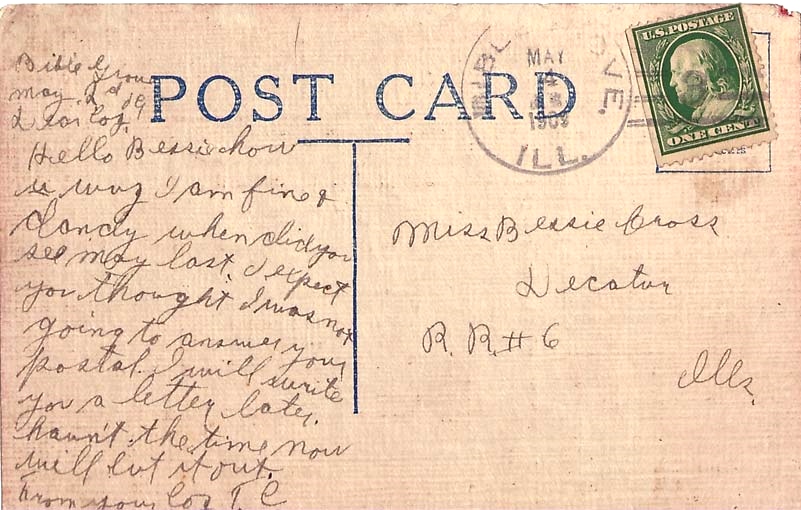 POST CARD
Bible Grove
May 2nd 09
Dear Coz.
Hello Bessie how
is way I am fine &
dandy when did you
see may last. I expect
you thought I was not
going to answer your
postal. I will write
you a letter later.
haun't the time now
will cut it out.
From your Coz T. C
MAY
1909
ILL.
U.S. POSTAGE
ONE CENT
Miss Bessie Cross
Decatur
R. R. # 6
Ills.